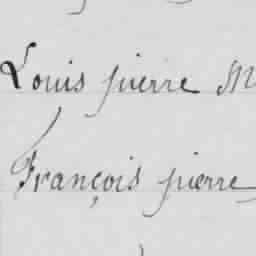 Louis pierre M
François pierre